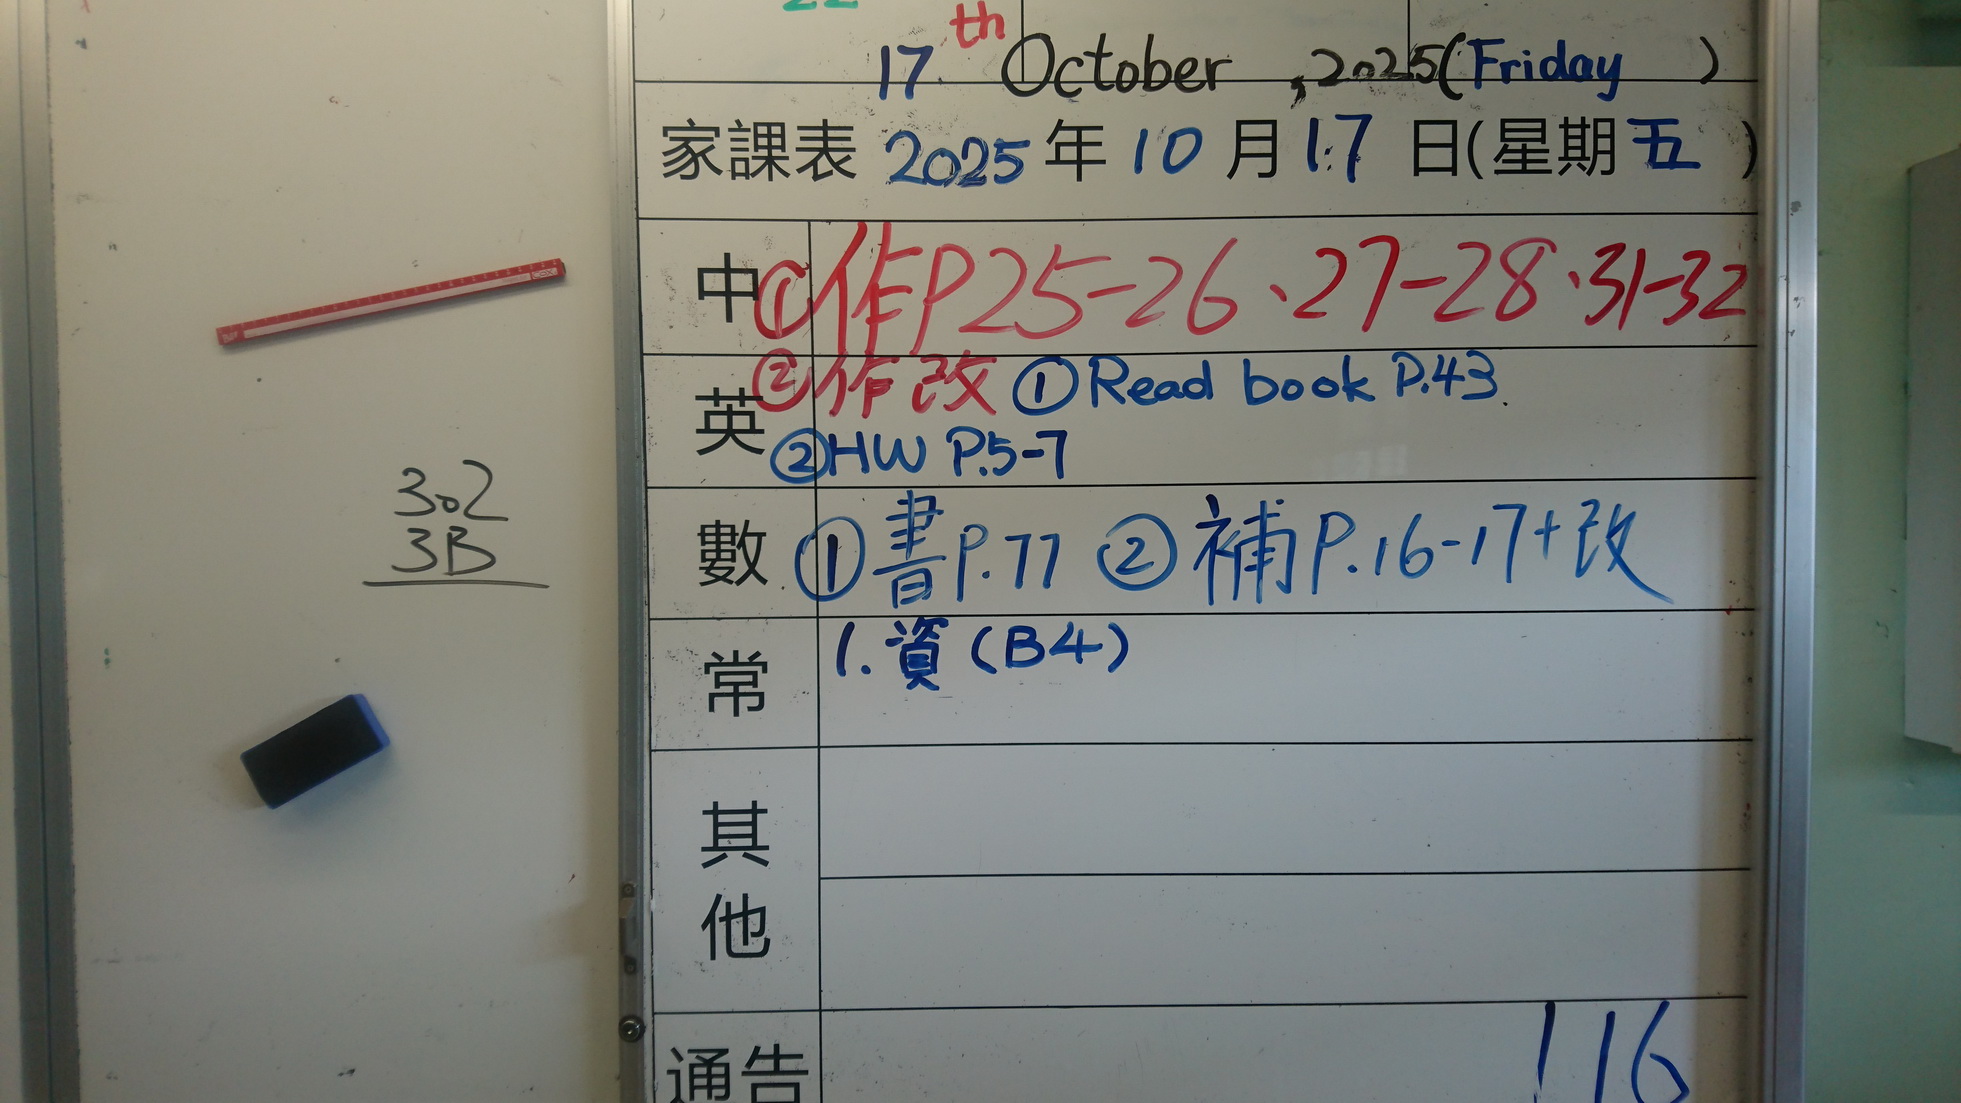 17th October , 2025 (Friday )
家課表 2025 年 10 月 17 日(星期 五 )
中 ①作P25-26、27-28、31-32
②作改
英 ①Read book P.43
②HW P.5-7
數 ①書P.77 ②補P.16-17+改
常 1.資(B4)
其他
通告 116
302
3B